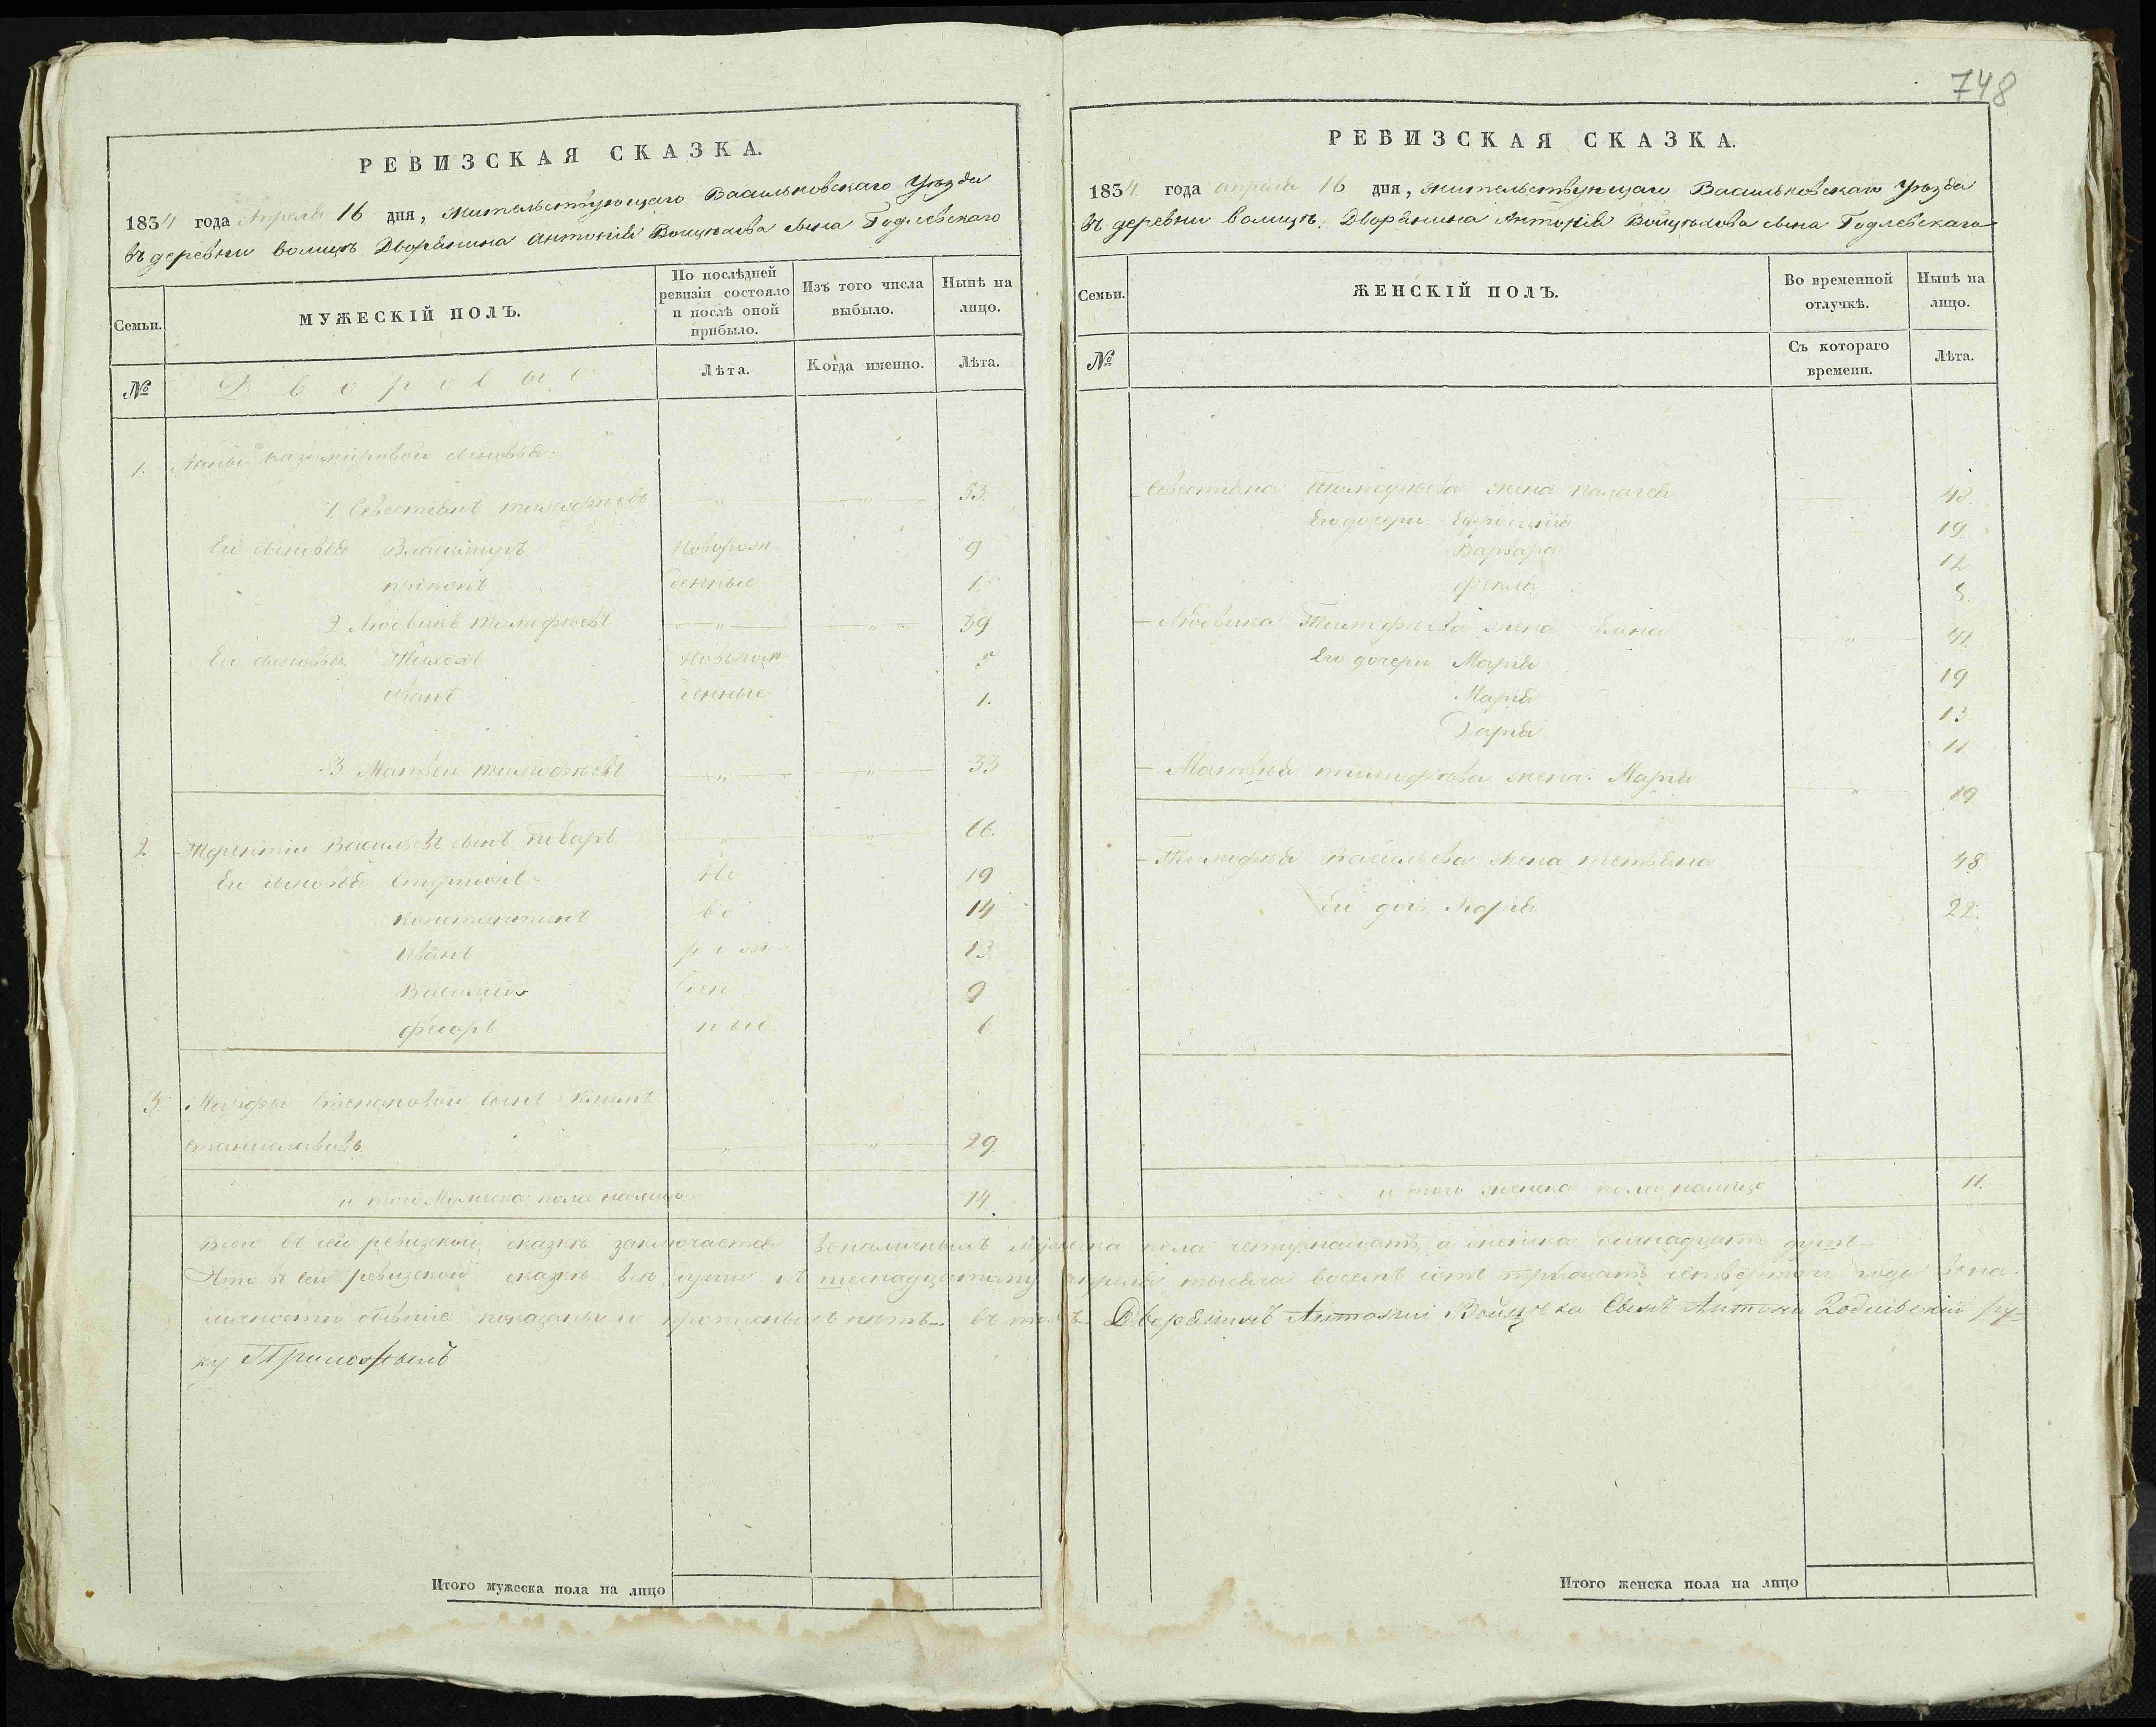 748
РЕВИЗСКАЯ СКАЗКА.
1834 года Апреля 16 дня, жительствующаго Васильковскаго Уѣзда
въ деревни волицѣ Дворянина Антонія Войцѣхова сына Годлевскаго
Семьи.
МУЖЕСКІЙ ПОЛЪ.
По послѣдней ревизіи состояло и послѣ оной прибыло.
Изъ того числа выбыло.
Нынѣ на лицо.
№
Дворовые
Лѣта.
Когда именно.
Лѣта.
1. Анны Казимировой сыновья:
1 Севестіянъ тимофѣевъ — „ — — „ — 53.
Его сыновья Владимиръ Новорож 9
прокопъ денные 1.
2 Людвикъ тимофѣевъ — „ — — „ — 39
Его сыновья Новорож 5
Иванъ денные 1.
3 Матвей тимофѣевъ — „ — — „ — 33
2. Терентій Васильевъ сынъ — „ — — „ — 66.
Его сыновья Но 19
Константинъ во 14
Иванъ рож 13
Василій ден 9
Федоръ ные 6
3. Марфы Степановой сынъ Климъ
станиславовъ — „ — — „ — 29.
и того Мужеска пола налицо 14.
РЕВИЗСКАЯ СКАЗКА.
1834 года апреля 16 дня, жительствующаго Васильковскаго Уѣзда
въ деревни волицѣ. Дворянина Антонія Войцѣхова сына Годлевскаго
Семьи.
ЖЕНСКІЙ ПОЛЪ.
Во временной отлучкѣ.
Нынѣ на лицо.
№
Съ котораго времени.
Лѣта.
Севестіяна Тимофѣева жена 48
Его дочери Ефросинія 19.
Варвара 12
Фекла 5.
— Людвика Тимофѣева жена — „ — 41.
Его дочери Марія 19
Марія 13.
Дарія 11
— Матвѣя тимофѣева жена Марія — „ — 19.
— Васильева жена тетьяна 48
Его дочь Марія 22.
и того женска пола налицо 11.
Всего въ сей ревизской сказкѣ заключается вналичныхъ мужеска пола четырнацать, а женска одинадцать душъ
Что въ сей ревизской сказкѣ всѣ души къ шеснадцатому апреля тысяча восемъ сотъ тридцать четвертаго года вна
личности бывшіе показаны и прописныхъ нѣтъ — въ томъ Дворянинъ Антоній Войцѣха Сынъ Антони Годлевскій ру-
ку Приложылъ
Итого мужеска пола на лицо
Итого женска пола на лицо